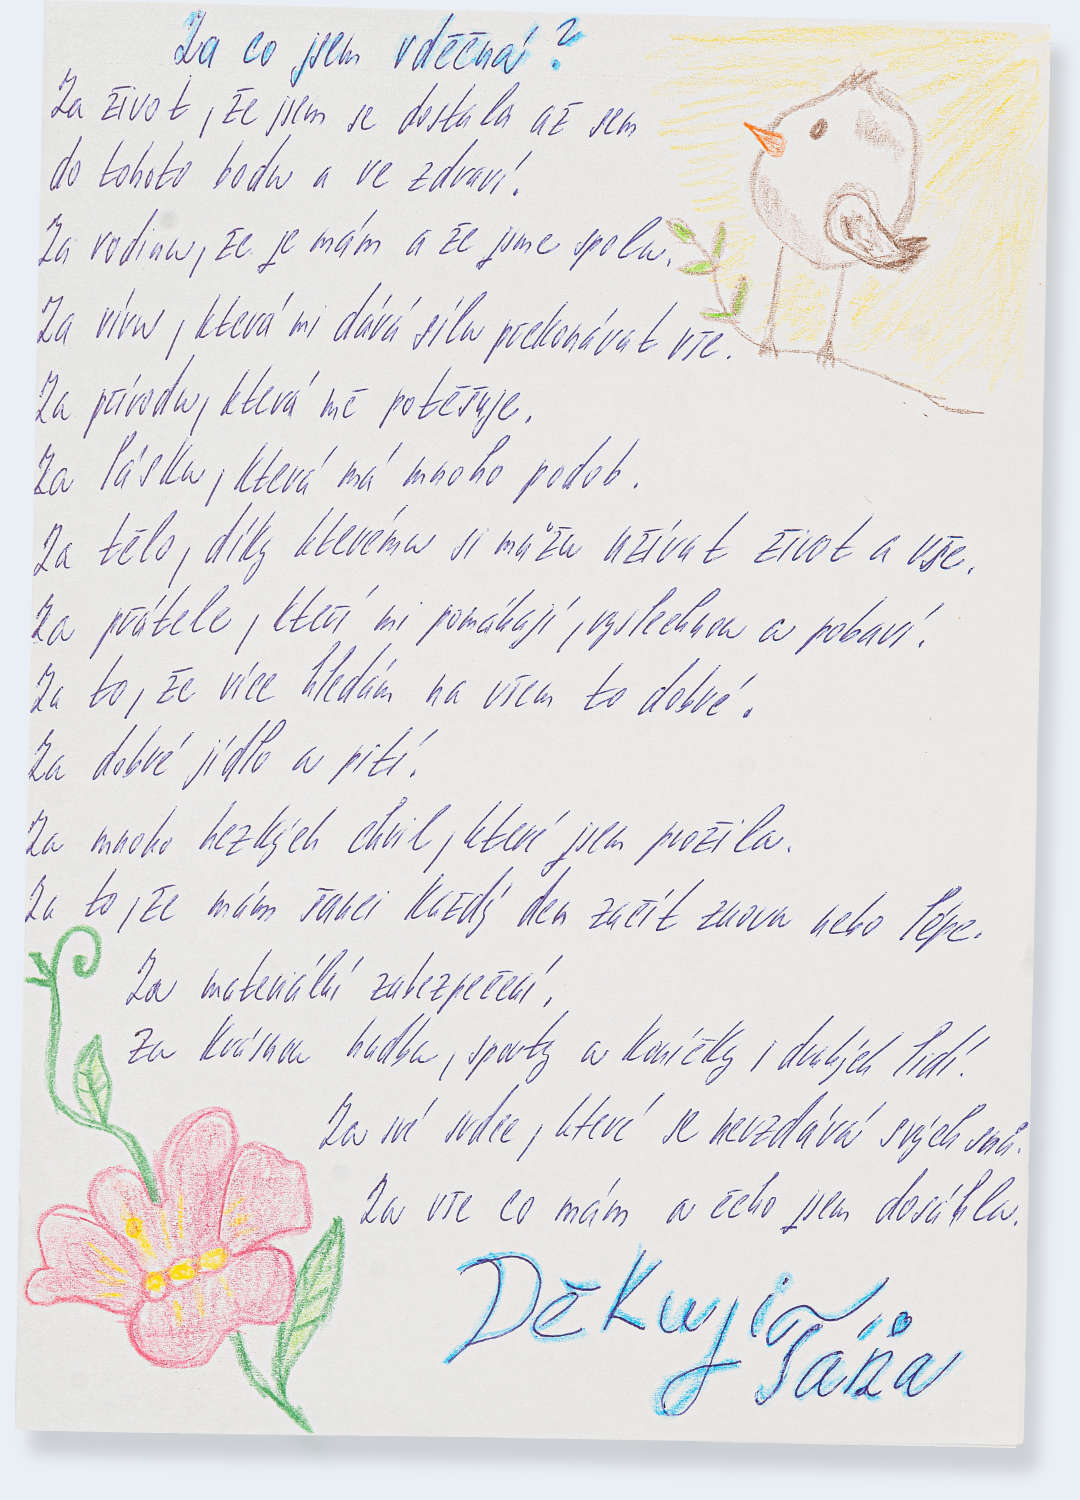 Za co jsem vděčná?
Za život, že jsem se dostala až sem
do tohoto bodu a ve zdraví.
Za rodinu, že je mám a že jsme spolu.
Za víru, která mi dává sílu překonávat vše.
Za přírodu, která mě potěšuje.
Za lásku, která má mnoho podob.
Za tělo, díky kterému si můžu užívat život a vše.
Za přátele, kteří mi pomáhají, vyslechnou a pobaví.
Za to, že více hledám na všem to dobré.
Za dobré jídlo a pití.
Za mnoho hezkých chvil, které jsem prožila.
Za to, že mám šanci každý den začít znovu nebo lépe.
Za materiální zabezpečení.
Za krásnou hudbu, sporty a koníčky i druhých lidí.
Za své srdce, které se nevzdává svých snů.
Za vše co mám a čeho jsem dosáhla.
Děkuji